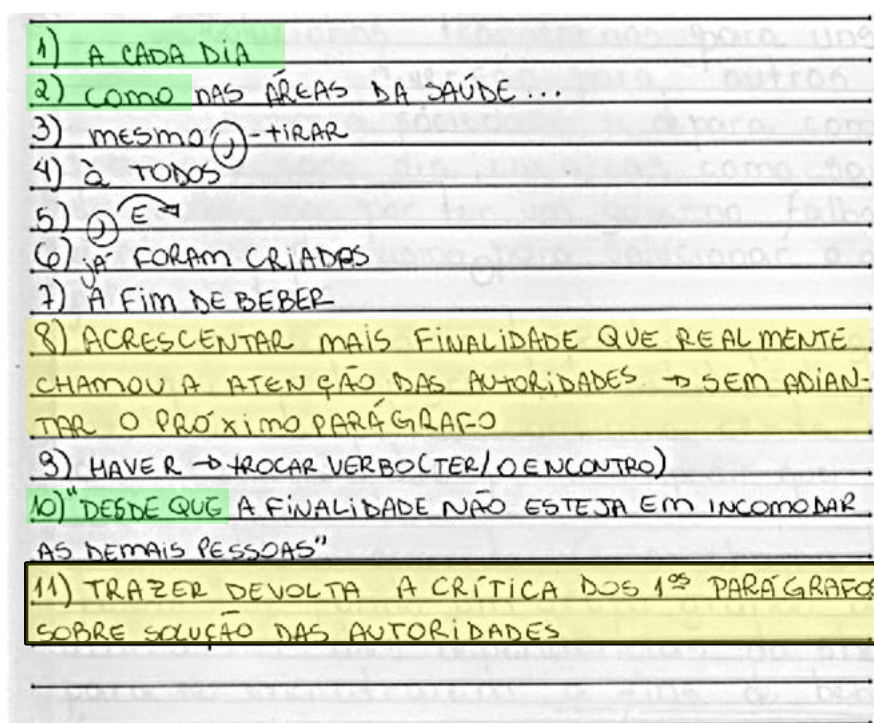 1) A CADA DIA
2) COMO NAS ÁREAS DA SAÚDE...
3) MESMO (,) → TIRAR
4) À TODOS
5) (,) E
6) JÁ FORAM CRIADOS
7) A FIM DE BEBER
8) ACRESCENTAR MAIS FINALIDADE QUE REALMENTE
CHAMOU A ATENÇÃO DAS AUTORIDADES → SEM ADIAN-
TAR O PRÓXIMO PARÁGRAFO
9) HAVER → TROCAR VERBO (TER/O ENCONTRO)
10) "DESDE QUE A FINALIDADE NÃO ESTEJA EM INCOMODAR
AS DEMAIS PESSOAS"
11) TRAZER DEVOLTA A CRÍTICA DOS 1ºs PARÁGRAFOS
SOBRE SOLUÇÃO DAS AUTORIDADES